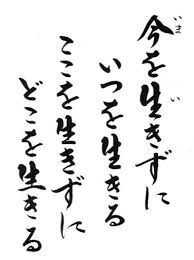 今を生きずに
いつを生きる
ここを生きずに
どこを生きる